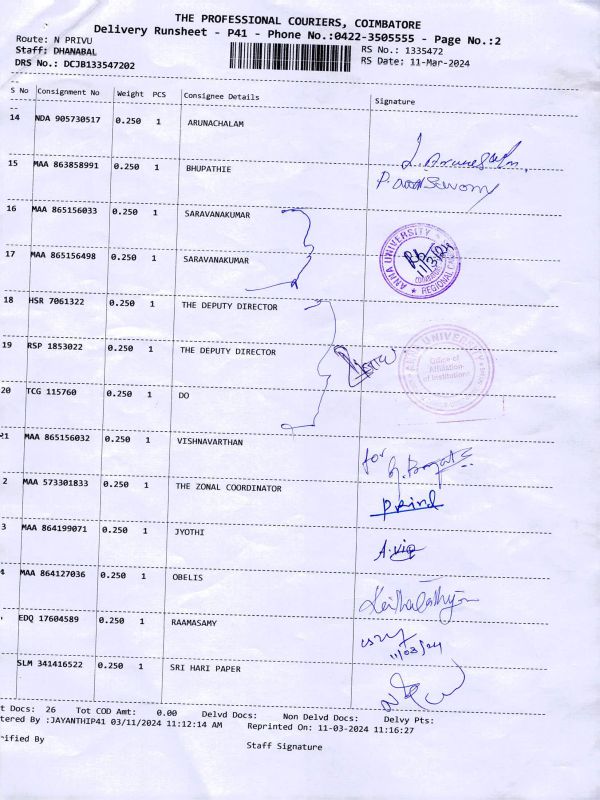 THE PROFESSIONAL COURIERS, COIMBATORE
Delivery Runsheet - P41 - Phone No.:0422-3505555 - Page No.:2
Route: N PRIVU
Staff: DHANABAL
DRS No.: DCJB133547202
RS No.: 1335472
RS Date: 11-Mar-2024
S No Consignment No Weight PCS Consignee Details Signature
14 NDA 905730517 0.250 1 ARUNACHALAM
15 MAA 863858991 0.250 1 BHUPATHIE
16 MAA 865156033 0.250 1 SARAVANAKUMAR
17 MAA 865156498 0.250 1 SARAVANAKUMAR
ANNA UNIVERSITY
REGIONAL
11/3/24
18 HSR 7061322 0.250 1 THE DEPUTY DIRECTOR
19 RSP 1853022 0.250 1 THE DEPUTY DIRECTOR
UNIVERSITY
Office of
Affiliation
of Institutions
20 TCG 115760 0.250 1 DO
21 MAA 865156032 0.250 1 VISHNAVARTHAN
for
2 MAA 573301833 0.250 1 THE ZONAL COORDINATOR
3 MAA 864199071 0.250 1 JYOTHI
4 MAA 864127036 0.250 1 OBELIS
EDQ 17604589 0.250 1 RAAMASAMY
11/03/24
SLM 341416522 0.250 1 SRI HARI PAPER
t Docs: 26 Tot COD Amt: 0.00 Delvd Docs: Non Delvd Docs: Delvy Pts:
tered By :JAYANTHIP41 03/11/2024 11:12:14 AM Reprinted On: 11-03-2024 11:16:27
rified By
Staff Signature